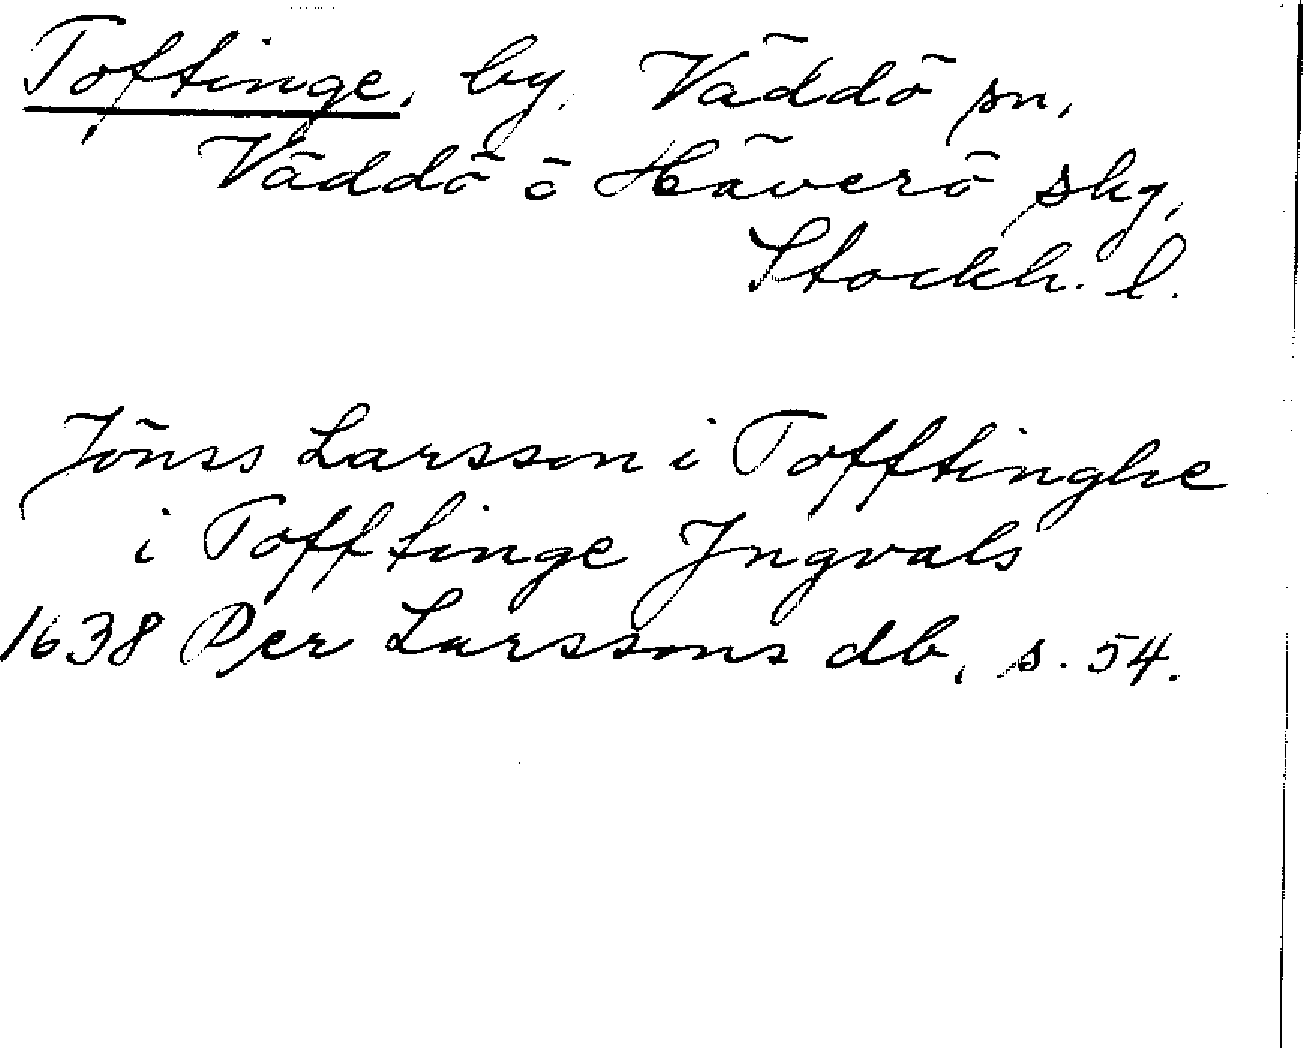 Toftinge, by, Väddö sn,
Väddö o Häverö skg,
Stockh. l.
Jönss Larsson i Tofftinghe
i Tofftinge Jngvals
1638 Per Larssons db, s. 54.